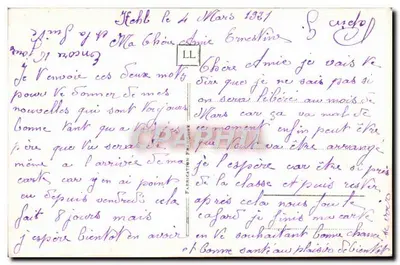 Kehl le 4 Mars 1921
Ma Chère Amie Ernestine
Je t'envoie ces deux mots
pour te donner de mes
nouvelles qui sont toujours
bonne tant qu a
pire que tu sera de
même a l'arrivée de ma
carte car y n ai point
eu depuis vendredi cela
fait 8 jours mais
j espère bientot en avoir
LL
Chère Amie je vais te
dire que je ne sais pas si
on sera libéré au mois de
Mars car ça va mal de
moment enfin peut être
que va être arrangé
je l'espère car être si près
de la classe et puis rester
après cela nous fout le
cafard je finis ma carte
en te souhaitant bonne chance
et bonne santé au plaisir de bientot